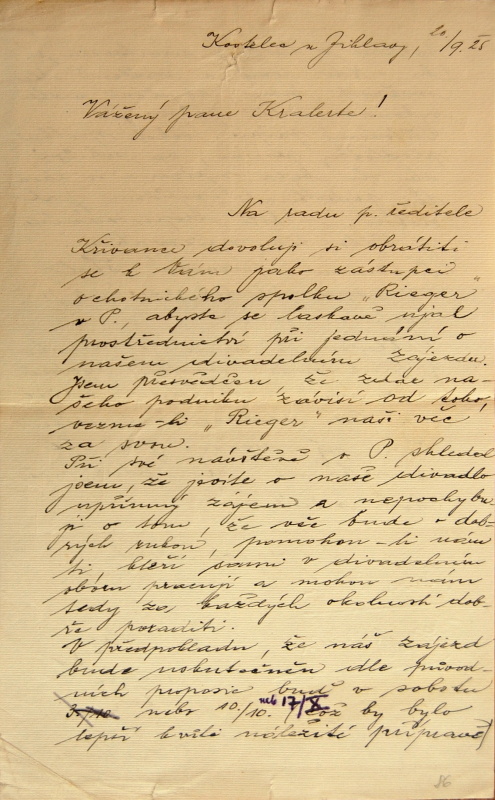 Kostelec u Jihlavy, 20/9. 25
Vážený pane Kralerte!
Na radu p. ředitele
Křivance dovoluji si obrátiti
se k Vám jako zástupci
ochotnického spolku „Rieger"
v P., abyste se laskavě ujal
prostřednictví při jednání o
našem divadelním zájezdu.
Jsem přesvědčen, že zdar na-
šeho podniku závisí od toho,
vezme-li „Rieger" naši věc
za svou.
Při své návštěvě v P. shledal
jsem, že jevíte o naše divadlo
upřímný zájem a nepochybu
ji o tom, že vše bude v dob-
rých rukou, pomohou-li nám
ti, kteří sami v divadelním
oboru pracují a mohou nám
tedy za každých okolností dob-
ře poraditi.
V předpokladu, že náš zájezd
bude uskutečněn dle původ-
ních propozic buď v sobotu
nebo 10./10. neb 17/X (což by bylo
lepší kvůli náležité přípravě)
86